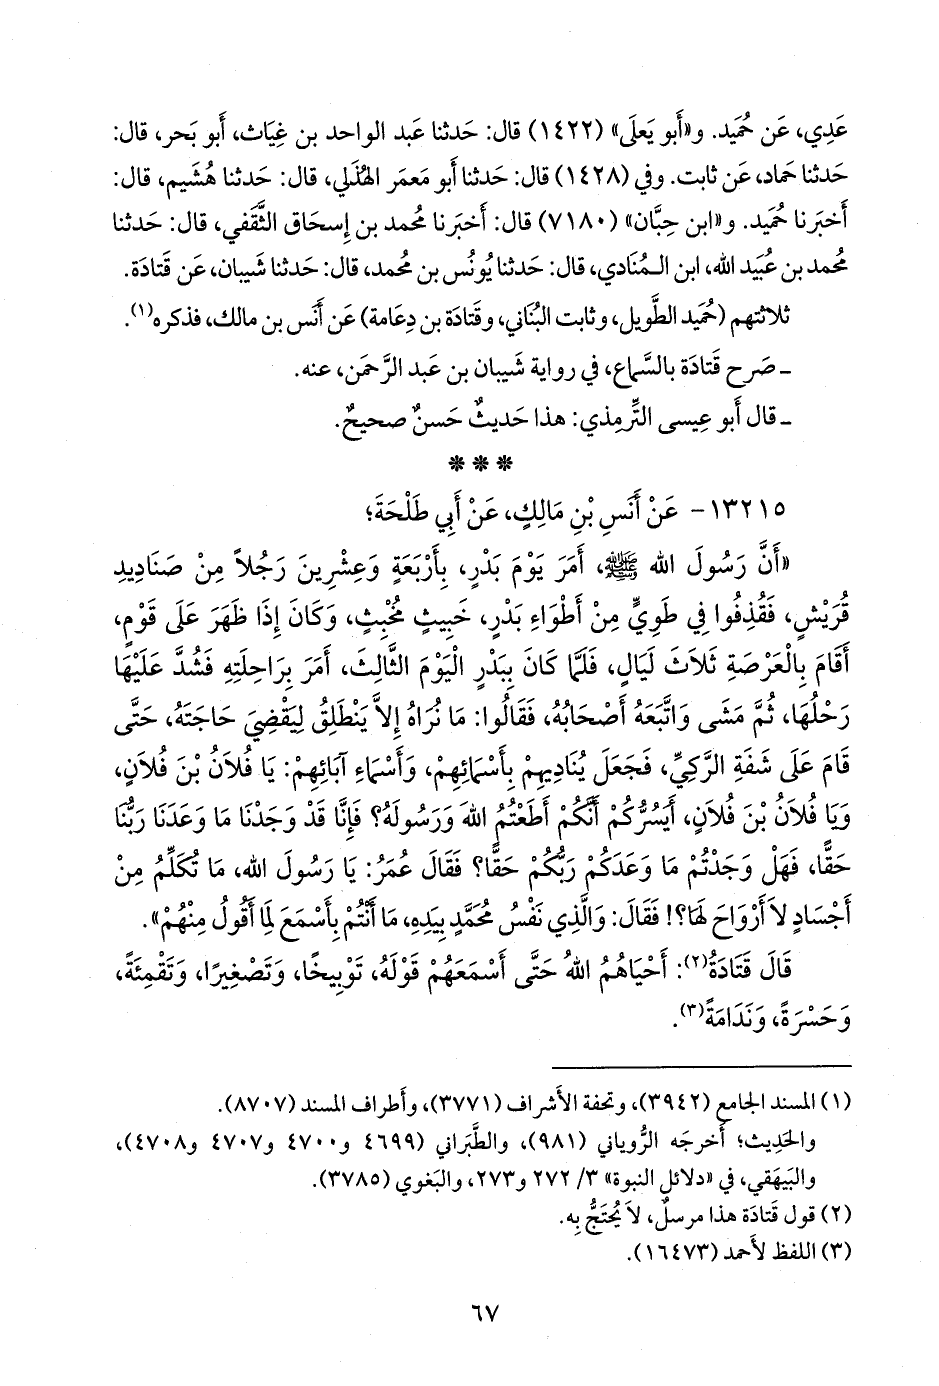 عَدِي، عَن حُمَيد. و«أَبو يَعلَى» (١٤٢٢) قال: حَدثنا عَبد الواحد بن غِيَاث، أَبو بَحر، قال:
حَدثنا حَماد، عَن ثابت. وفي (١٤٢٨) قال: حَدثنا أَبو مَعمَر الهُذَلي، قال: حَدثنا هُشَيم، قال:
أَخبَرنا حُمَيد. و«ابن حِبَّان» (٧١٨٠) قال: أَخبَرنا مُحمد بن إِسحَاق الثَّقَفي، قال: حَدثنا
مُحمد بن عُبَيد الله، ابن الـمُنَادي، قال: حَدثنا يُونُس بن مُحمد، قال: حَدثنا شَيبان، عَن قَتادَة.
ثلاثتهم (حُمَيد الطَّويل، وثابت البُنَاني، وقَتادَة بن دِعَامة) عَن أَنس بن مالك، فذكره(١).
ـ صَرح قَتادَة بالسَّماع، في رواية شَيبان بن عَبد الرَّحمَن، عنه.
ـ قال أَبو عِيسى التِّرمِذي: هذا حَديثٌ حَسنٌ صحيحٌ.
***
١٣٢١٥- عَنْ أَنَسِ بْنِ مَالِكٍ، عَنْ أَبِي طَلْحَةَ؛
«أَنَّ رَسُولَ الله ﷺ، أَمَرَ يَوْمَ بَدْرٍ، بِأَرْبَعَةٍ وَعِشْرِينَ رَجُلاً مِنْ صَنَادِيدِ
قُرَيْشٍ، فَقُذِفُوا فِي طَوِيٍّ مِنْ أَطْوَاءِ بَدْرٍ، خَبِيثٍ مُخْبِثٍ، وَكَانَ إِذَا ظَهَرَ عَلَى قَوْمٍ،
أَقَامَ بِالْعَرْصَةِ ثَلاَثَ لَيَالٍ، فَلَمَّا كَانَ بِبَدْرٍ الْيَوْمَ الثَّالِثَ، أَمَرَ بِرَاحِلَتِهِ فَشُدَّ عَلَيْهَا
رَحْلُهَا، ثُمَّ مَشَى وَاتَّبَعَهُ أَصْحَابُهُ، فَقَالُوا: مَا نُرَاهُ إِلاَّ يَنْطَلِقُ لِيَقْضِيَ حَاجَتَهُ، حَتَّى
قَامَ عَلَى شَفَةِ الرَّكِيِّ، فَجَعَلَ يُنَادِيهِمْ بِأَسْمَائِهِمْ، وَأَسْمَاءِ آبَائِهِمْ: يَا فُلاَنُ بْنَ فُلاَنٍ،
وَيَا فُلاَنُ بْنَ فُلاَنٍ، أَيَسُرُّكُمْ أَنَّكُمْ أَطَعْتُمُ اللهَ وَرَسُولَهُ؟ فَإِنَّا قَدْ وَجَدْنَا مَا وَعَدَنَا رَبُّنَا
حَقًّا، فَهَلْ وَجَدْتُمْ مَا وَعَدَكُمْ رَبُّكُمْ حَقًّا؟ فَقَالَ عُمَرُ: يَا رَسُولَ الله، مَا تُكَلِّمُ مِنْ
أَجْسَادٍ لاَ أَرْوَاحَ لَهَا؟! فَقَالَ: وَالَّذِي نَفْسُ مُحَمَّدٍ بِيَدِهِ، مَا أَنْتُمْ بِأَسْمَعَ لِمَا أَقُولُ مِنْهُمْ».
قَالَ قَتَادَةُ(٢): أَحْيَاهُمُ اللهُ حَتَّى أَسْمَعَهُمْ قَوْلَهُ، تَوْبِيخًا، وَتَصْغِيرًا، وَتَقْمِئَةً،
وَحَسْرَةً، وَنَدَامَةً(٣).
(١) المسند الجامع (٣٩٤٢)، وتحفة الأشراف (٣٧٧١)، وأَطراف المسند (٨٧٠٧).
والحَدِيث؛ أَخرجَه الرُّوياني (٩٨١)، والطَّبَراني (٤٦٩٩ و٤٧٠٠ و٤٧٠٧ و٤٧٠٨)،
والبَيهَقي، في «دلائل النبوة» ٣/ ٢٧٢ و٢٧٣، والبَغوي (٣٧٨٥).
(٢) قول قَتادَة هذا مرسلٌ، لاَ يُحتَجُّ بِه.
(٣) اللفظ لأَحمد (١٦٤٧٣).
٦٧